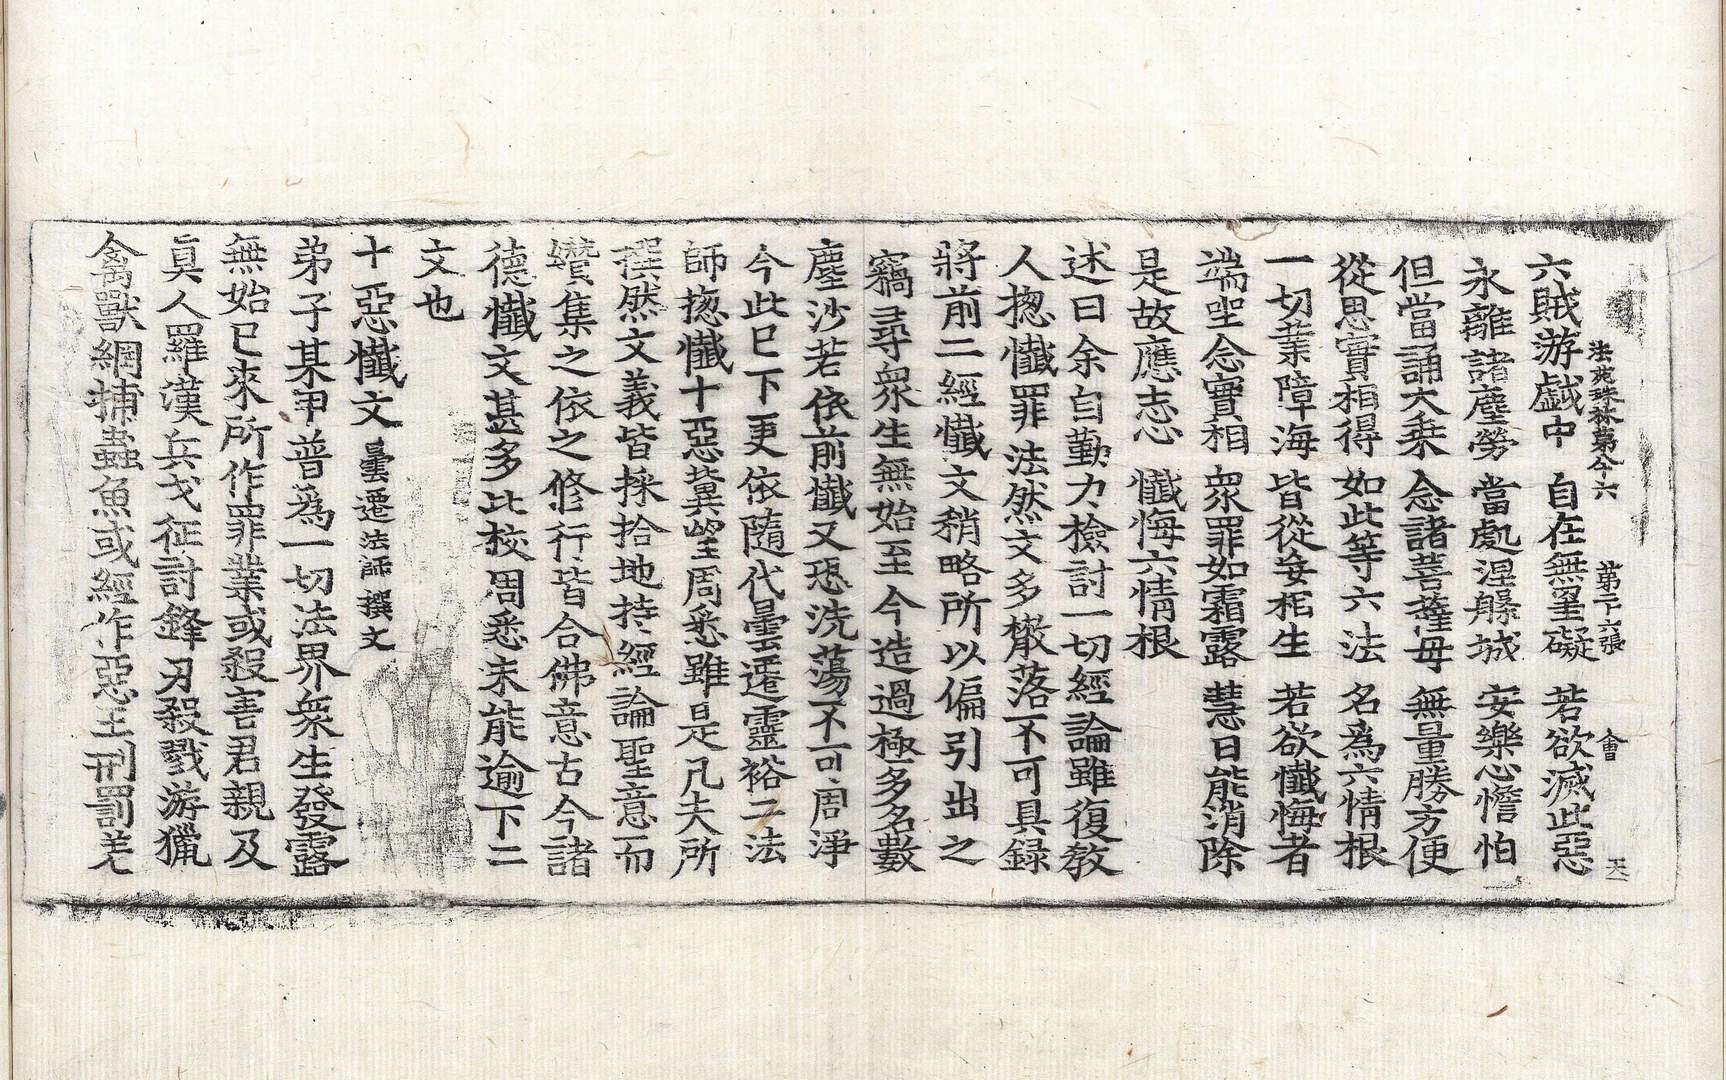 法苑珠林第八十六　第二十六張　會
六賊游戱中　自在無罣礙　若欲滅此惡
永離諸塵勞　當處涅槃城　安樂心憺怕
但當誦大乗　念諸菩薩母　無量勝方便
從思實相得　如此等六法　名爲六情根
一切業障海　皆從妄相生　若欲懺悔者
端坐念實相　衆罪如霜露　慧日能消除
是故應志心　懺悔六情根
述曰余自勤力檢討一切經論雖復教
人揔懺罪法然文多散落不可具録
將前二經懺文稍略所以偏引出之
竊尋衆生無始至今造過極多名數
塵沙若依前懺又恐洗蕩不可周淨
今此已下更依隨代曇遷靈裕二法
師揔懺十惡冀望周悉雖是凡夫所
撰然文義皆採拾地持經論聖意而
纘集之依之修行皆合佛意古今諸
德懺文甚多比校周悉未能逾下二
文也
十惡懺文 曇遷法師撰文
弟子某甲普爲一切法界衆生發露
無始已來所作罪業或殺害君親及
眞人羅漢兵戈征討鋒刃殺戮游獵
禽獸網捕蟲魚或經作惡王刑罰差